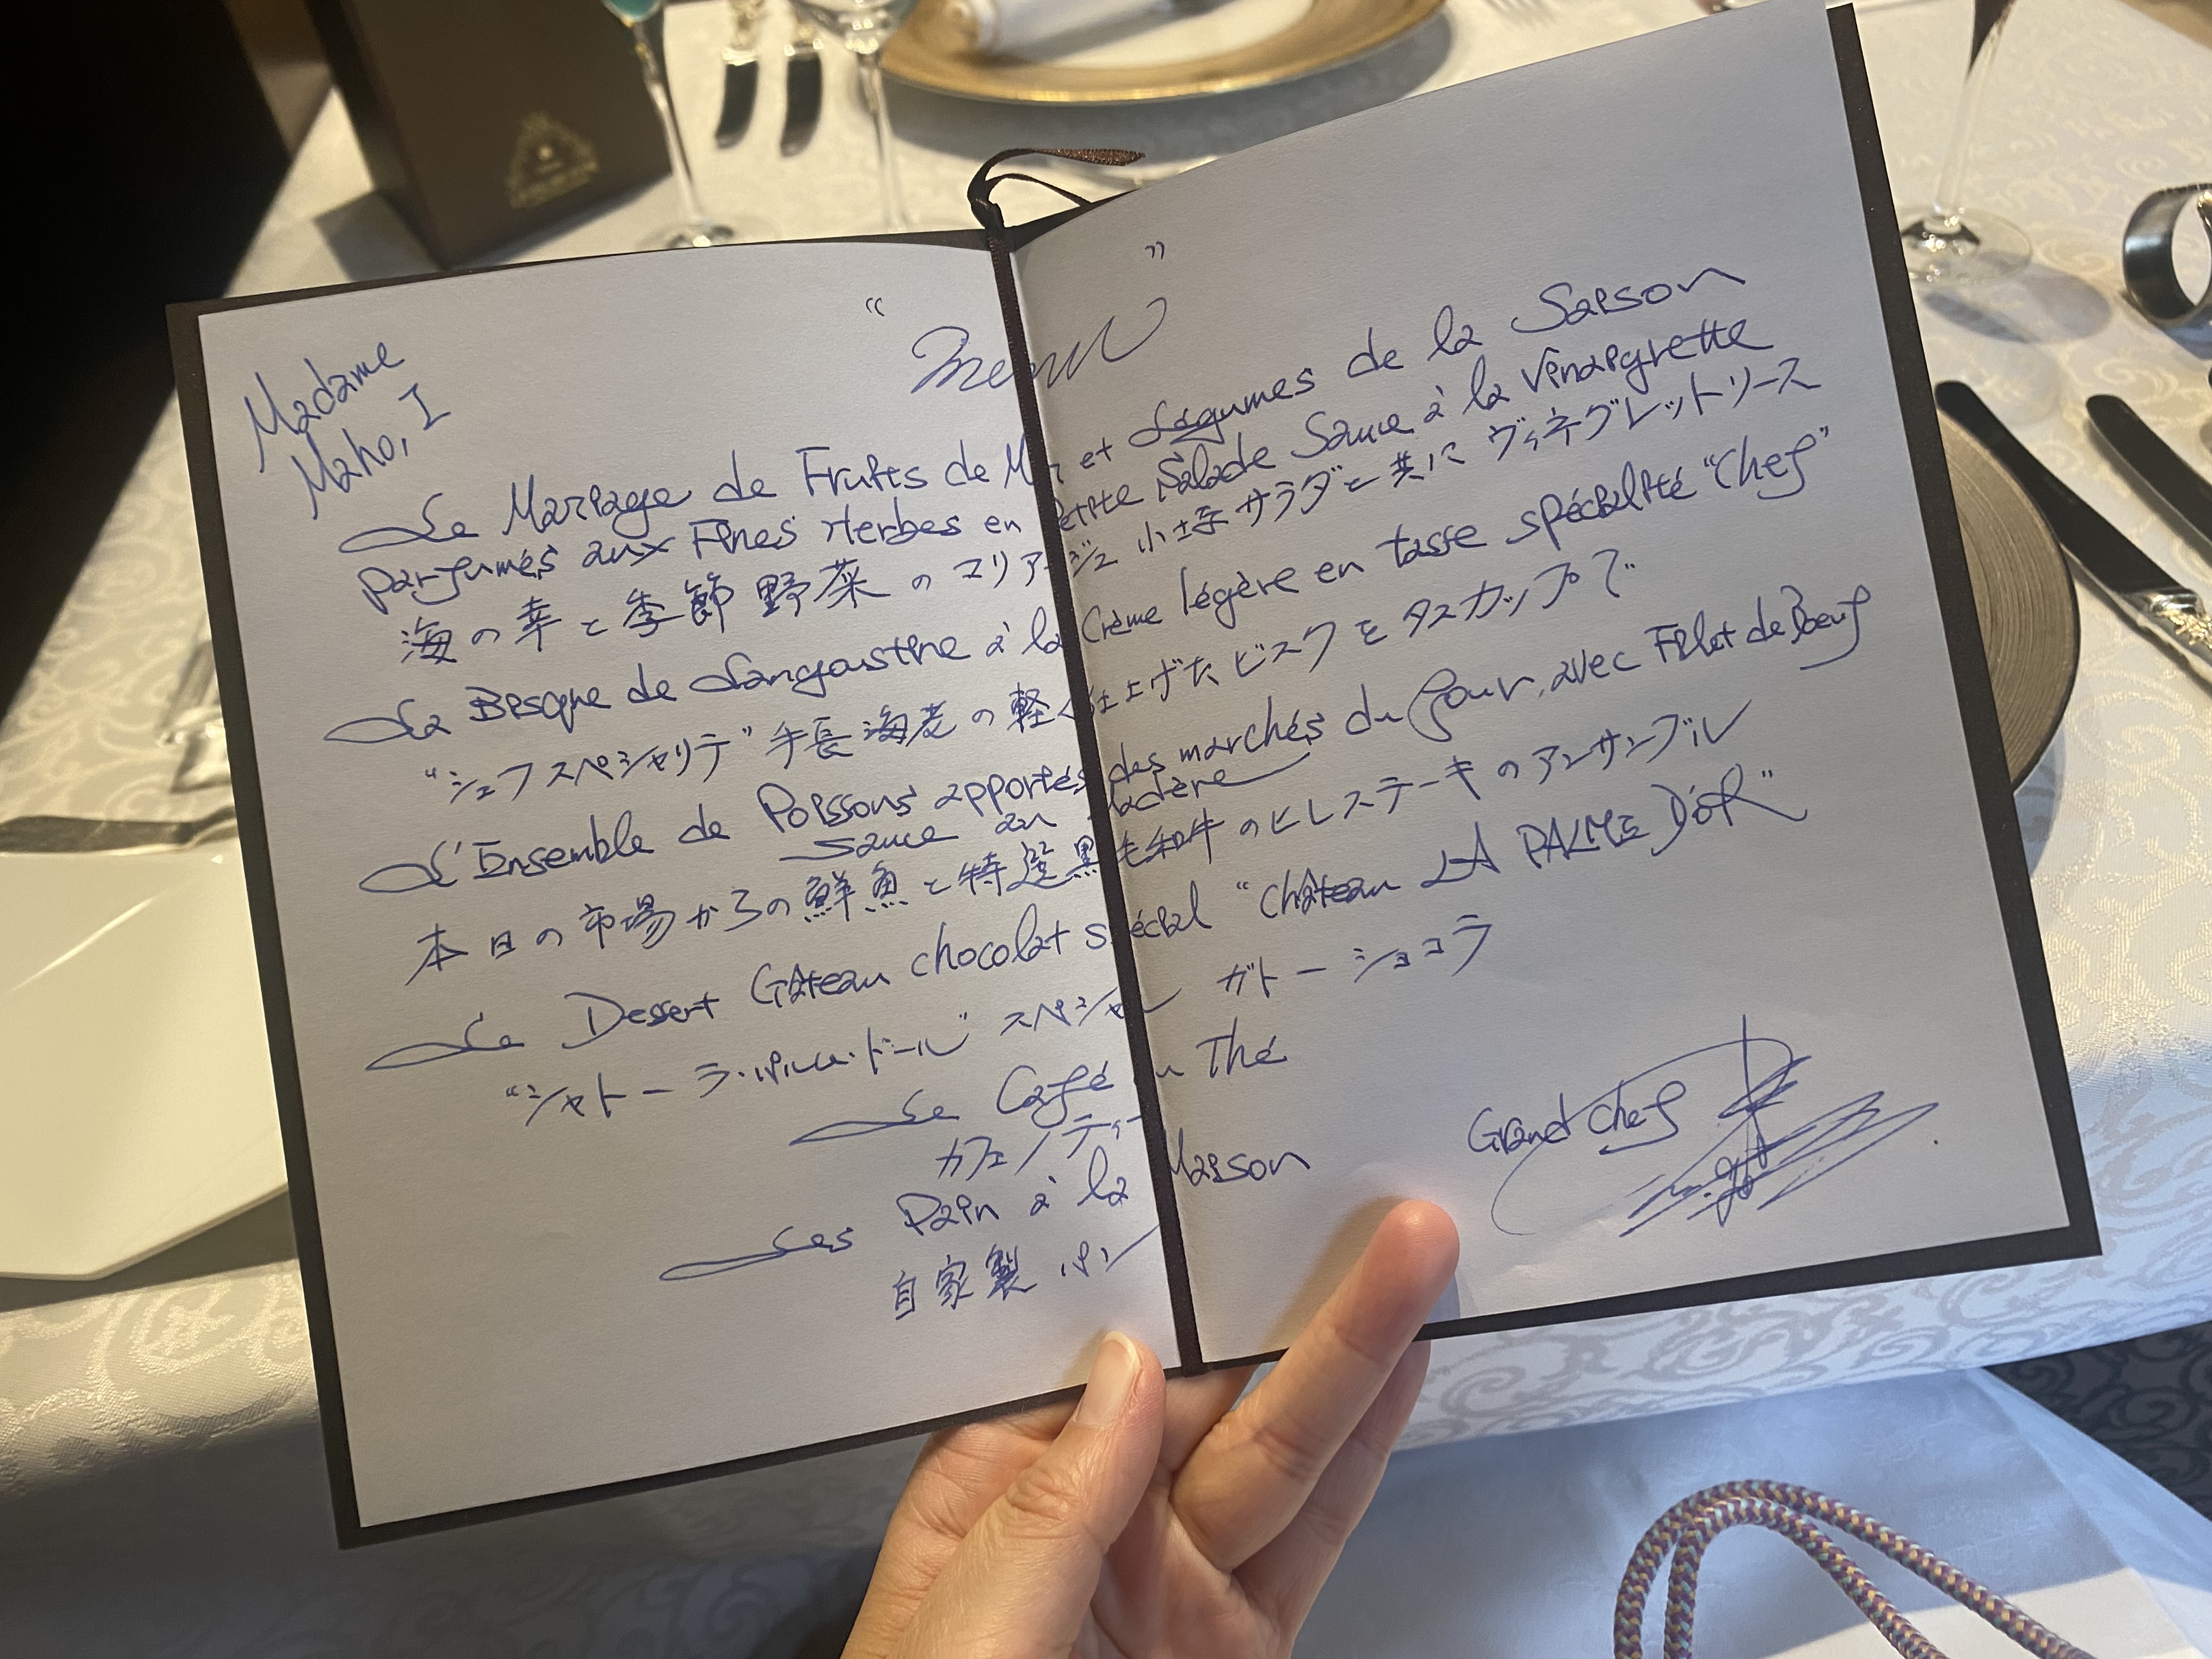 Madame
Maho, I
"Menu"
Le Mariage de Fruits de Mer et Légumes de la Saison
parfumés aux Fines Herbes en Petite Salade Sauce à la Vinaigrette
海の幸と季節野菜のマリアージュ 小さなサラダと共に ヴィネグレットソース
La Bisque de Langoustine à la Crème légère en tasse spécialité "Chef"
"シェフスペシャリテ" 手長海老の軽く仕上げたビスクをタスカップで
L'Ensemble de Poissons apportés des marchés du Jour, avec Filet de Boeuf
Sauce au
本日の市場からの鮮魚と特選黒毛和牛のヒレステーキのアンサンブル
Le Dessert Gâteau chocolat spécial "Château LA PALME D'OR"
"シャトーラ・パルム・ドール" スペシャル ガトーショコラ
Le Café ou Thé
カフェ/ティー
Les Pain à la Maison
自家製パン
Grand chef